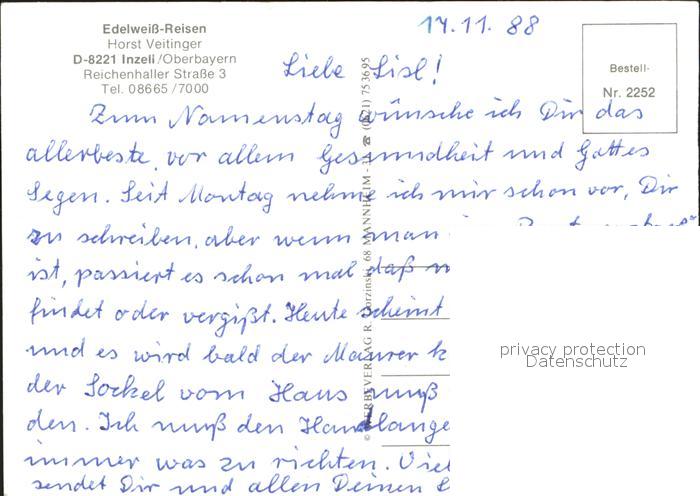 Edelweiß-Reisen
Horst Veitinger
D-8221 Inzell/Oberbayern
Reichenhaller Straße 3
Tel. 08665/7000
14.11. 88
Bestell-
Nr. 2252
Liebe Lisl!
Zum Namenstag wünsche ich Dir das
allerbeste, vor allem Gesundheit und Gottes
Segen. Seit Montag nehme ich mir schon vor, Dir
zu schreiben, aber wenn man
ist, passiert es schon mal daß
findet oder vergißt. Heute scheint
und es wird bald der Maurer
der Sockel vom Haus muß
den. Ich muß den Handlange
immer was zu richten. Viel
sendet Dir und allen Deinen
WERBEVERLAG R. 68 MANNHEIM
privacy protection
Datenschutz